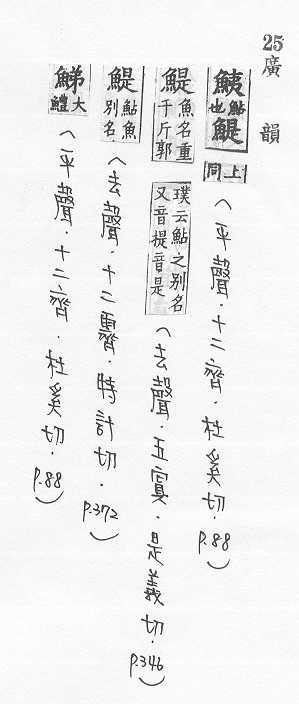 25
廣韻
鮧鮎也鯷上同(平聲·十二齊·杜奚切·P.88)
鯷魚名重千斤郭璞云鮎之別名又音提音是(去聲·五寘·是義切·P.346)
鯷鮎魚別名(去聲·十二霽·特計切·P.372)
鮷大鱧(平聲·十二齊·杜奚切·P.88)